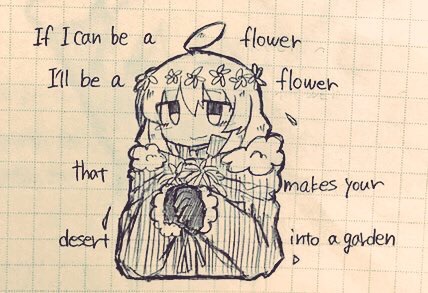 If I can be a flower
I'll be a flower
that makes your
desert into a garden